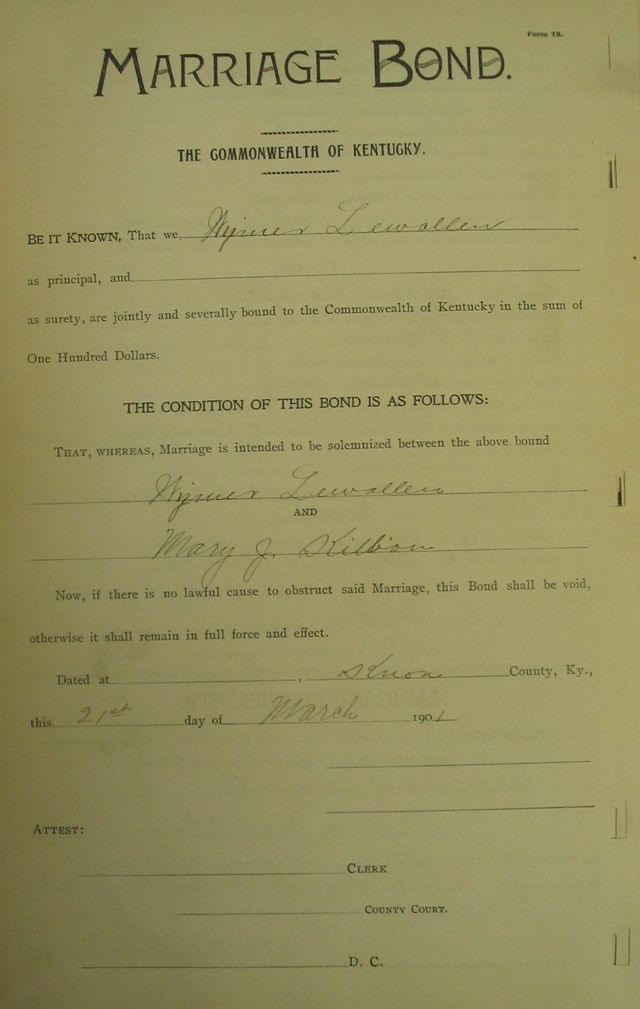 Form 79.
MARRIAGE BOND.
THE COMMONWEALTH OF KENTUCKY.
BE IT KNOWN, That we, Wymer Lewallen
as principal, and
as surety, are jointly and severally bound to the Commonwealth of Kentucky in the sum of
One Hundred Dollars.
THE CONDITION OF THIS BOND IS AS FOLLOWS:
THAT, WHEREAS, Marriage is intended to be solemnized between the above bound
Wymer Lewallen
AND
Mary J.
Now, if there is no lawful cause to obstruct said Marriage, this Bond shall be void,
otherwise it shall remain in full force and effect.
Dated at , Knox County, Ky.,
this 21st day of March 1901
ATTEST:
CLERK
COUNTY COURT.
D. C.